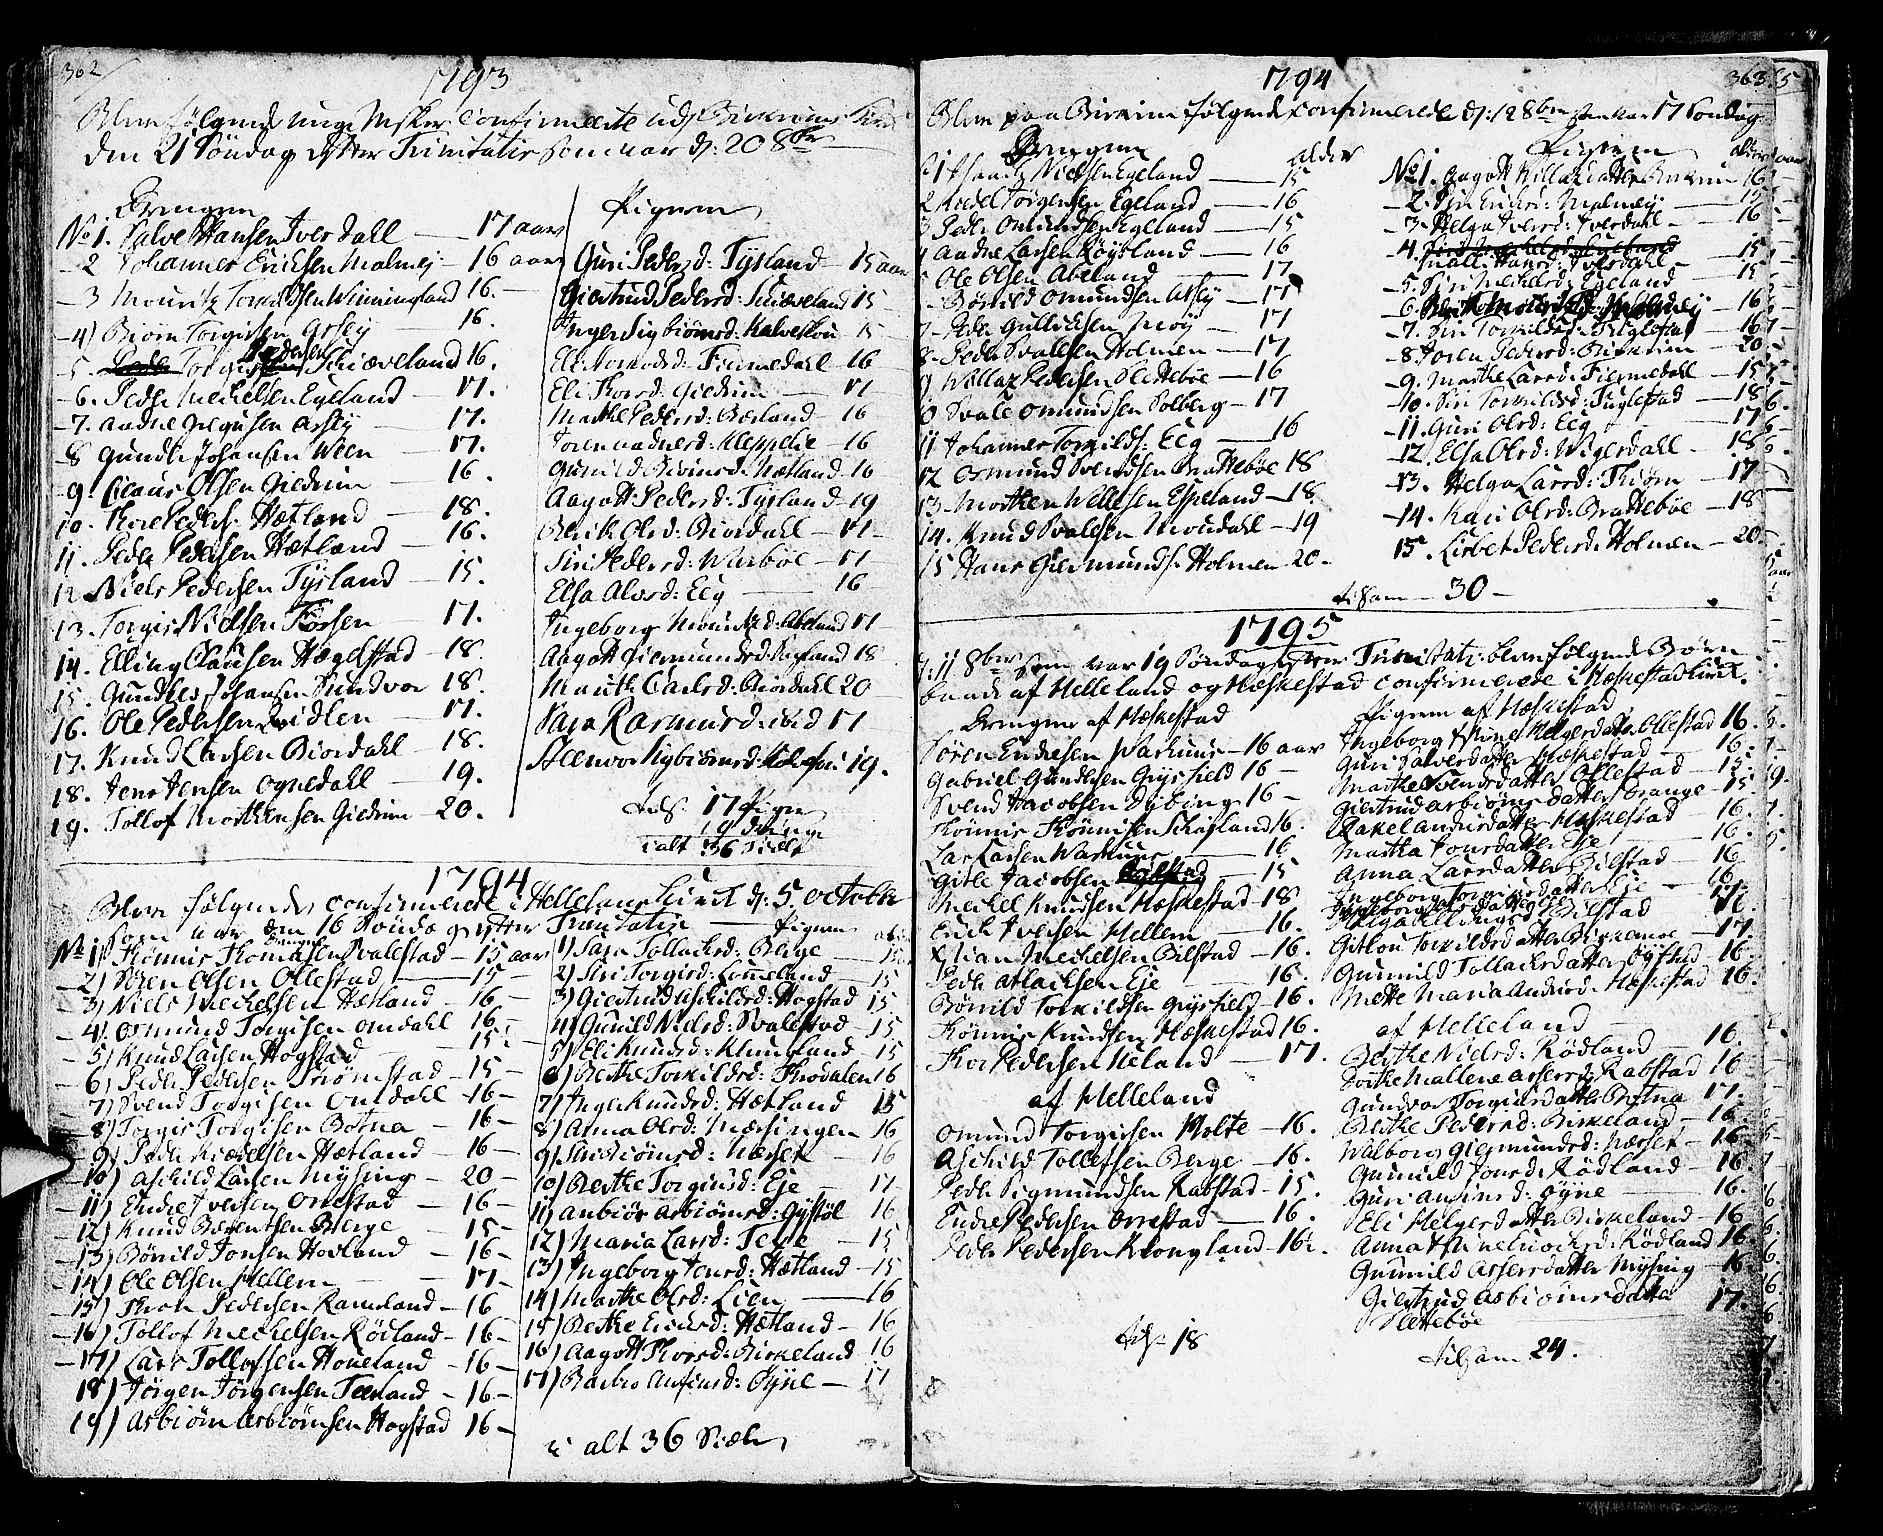 362
1793
Bleve følgende unge Msker Confirmeerte udj Birkrims Kirke
den 21 Søndag efter Trinitatis som var d: 20 8br
Drengene
No 1. Salve Hansen Iverdahl — 17 aar
2 Johannes Ericksen Malmej — 16 aar
3 Mouritz Tormodsen Winningland 16.
4) Biørn Torgisen Arsey — 16.
5. Torgis Pedersen Skiæveland 16.
6. Peder Meckelsen Egeland — 17.
7. Aadne Gregusen Arsey — 17.
8 Gundle Johansen Ween — 17.
9. Claus Olsen Giedrim — 16.
10. Thore Peders: Hætland — 18.
11. Peder Pedersen Hætland — 16.
12 Niels Pedersen Tysland — 15.
13. Torgis Nielsen Fossen — 17.
14. Elling Clausen Hægelstad — 18.
15. Gundles Johansen Sundvor 18.
16. Ole Pedersen Lidlen — 17.
17. Knud Larsen Biordahl — 18.
18. Jens Jensen Ognedahl — 19.
19. Tollof Morthensen Giedrim — 20.
Pigerne
Guri Pedersd: Tysland — 15 aar
Giertrud Pedersd: Skiæveland 15
Inger Sigbiørnsd: Kalveskou 15
Eli Tormodsd: Fiermedahl — 16
Eli Thorsd: Giedrim — 17
Marthe Pedersd: Bærland 16
Joren Aadnesd: Kleppelie — 16
Gunild Eivinsd: Hætland — 16
Aagott Pedersd: Tysland — 19
Berit Olsd: Biordahl — 17
Siri Pedersd: Warbøe — 17
Elsa Alvsd: Eeg — 16
Ingeborg Mouritzd: Abeland 17
Aagott Giermundsd: Egeland 18
Marite Carlsd: Biordahl 20
Sara Rasmusd: ibid 17
Steenvor Sigbiørnsd: Kalveskou 19.
tils. 17 Piger
19 Drenge
i alt 36 Siæle
1794
Bleve følgende confirmerede i Helleland Kirke d: 5. octobr
som var den 16 Søndag efter Trinitatis
Drengene
No 1) Thønnis Thomasen Svalestad — 15 aar
2) Søren Olsen Ollestad — 15 —
3) Niels Meckelsen Hætland — 16 —
4) Osmund Torgisen Omdahl 16 —
5) Knud Larsen Hogstad — 15 —
6) Peder Pedersen Strømstad — 15 —
7) Svend Torgisen Omdahl — 16 —
8) Torgis Torgisen Botna — 16 —
9) Peder Mickelsen Hætland — 16 —
10) Aschild Larsen Mysing — 20 —
11) Endre Iversen Orrestad — 16 —
12) Knud Bærentsen Berge — 15 —
13) Bønild Jonsen Hovland — 16 —
14) Ole Olsen Hellem — 17 —
15) Thore Pedersen Ramsland — 16
16) Tollof Meckelsen Rødland — 16 —
17) Lars Tollofsen Houeland — 16 —
18) Jørgen Jørgensen Terland — 16 —
19) Asbiørn Asbiørnsen Hogstad 16 —
Pigerne
1) Sara Tollachsd: Berge — 15
2) Siri Torgisd: Lomeland — 15
3) Giertrud Aschildsd: Hogstad 15
4) Gunild Nielsd: Svalestad — 15
5) Eli Knudsd: Klungland 15
6) Berthe Torkildsd: Skrodalen 16
7) Inger Knudsd: Hætland 15
8) Anna Olsd: Næsingen 16
9) Siri Biørnsd: Næsset — 16
10) Berthe Torgiusd: Eje — 17
11) Anbiør Asbiørnsd: Gystøl 16
12) Maria Larsd: Teje — 15
13) Ingeborg Jensd: Hætland — 15
14) Marthe Olsd: Lien — 16
15) Berthe Eivindsd: Hætland — 16
16) Aagott Thorsd: Birkeland 16
17) Barbro Aufindsd: Øyne — 17
i alt 36 Siæle
363
1794
Bleve paa Birkrim følgende Confirmerede d: 12 8br som var 17 Søndag
Drengene alder
1 Mouritz Nielsen Egeland — 15
2 Lodel Jørgensen Egeland — 16
3 Peder Omundsen Egeland — 15
4 Aadne Larsen Røysland — 16
5 Ole Olsen Abeland — 17
6 Bønild Omundsen Arsey — 17
7 Peder Gullichsen Moy — 17
8 Peder Svalesen Holmen — 17
9 Willaz Pedersen Slettebøe — 16
10 Svale Omundsen Solberg — 17
11 Johannes Torkilds: Eeg — 16
12 Osmund Svendsen Brattebøe 18
13. Morthen Wellesen Espeland — 18.
14. Knud Svalesen Moudahl — 19
15 Hans Giermunds: Holmen — 20 —
Pigerne alder aar
No 1. Aagott Willazdatter Birkrim 16
2. Siri Ericksd: Malmej — 15
3. Helga Iversd: Iverdahl — 16
4. Malli Hansd: Iverdahl — 15
5. Siri Meckelsd: Egeland — 15
6. 16
7. Siri Torkildsd: Fuglestad 16
8 Joren Pedersd: Birkrim — 20
9. Marthe Larsd: Fiermedahl — 15
10. Siri Torkildsd: Fuglestad — 18
11. Guri Olsd: Eeg — 17
12. Elsa Olsd: Wigesdahl — 18
13. Helga Larsd: Thiørn — 17
14. Kari Olsd: Brattebøe — 18
15. Lisbet Pedersd: Holmen — 20.
tilsam — 30 —
1795
d: 11 8br som var 19 Søndag efter Trinitatis bleve følgende Børn
baade af Helleland og Heskestad confirmerede i Heskestad Kirke.
Drengene af Heskestad
Søren Endresen Warhuus — 16 aar
Gabriel Gundlesen Grysfield 16 —
Svend Jacobsen Dybing 16 —
Thønnis Thønnisen Schogland 16.
Lars Larsen Warhuus — 16
Gitle Jacobsen — 15
Meckel Knudsen Heskestad 18
Erich Iversen Hellem — 16.
Stian Meckelsen Bilstad — 16.
Peder Atlachsen Eje — 16.
Bønild Torkildsen Grysfield — 16.
Thønnis Knudsen Heskestad 16.
Thore Pedersen Ueland — 17.
af Helleland
Omund Torgisen Holte — 16.
Aschild Tollefsen Berge — 16.
Peder Sigmundsen Rabstad — 15.
Endre Pedersen Orrestad — 16.
Peder Pedersen Klongland — 16.
tils 18
Pigerne af Heskestad
Ingeborg Stine Helgesdatter Ollestad 16.
Guri Salvesdatter Heskestad — 16.
Marthe Svendsdatter Ollestad — 15.
Giertrud Asbiørnsdatter Drange — 15.
Rakel Andersdatter Heskestad — 16.
Martha Jonsdatter Eje — 16.
Anna Larsdatter Bilstad — 16
Ingeborg Torgiersdatter Eje — 16.
Bilstad 17.
Gitlou Torkildsdatter Birkemoe — 17.
Gunnild Tollachsdatter Øyestad — 16.
Mette Maria Andersd: Heskestad 16.
af Helleland
Berthe Nielsd: Rødland — 16.
Dorthe Mallene Assersd: Rabstad 16
Gundvor Torgiersdatter Botna 17.
Berthe Pedersd: Birkeland — 16.
Walborg Giermundsd: Næsset — 16.
Gunnild Jonsd: Rødland — 16.
Guri Aufinsd: Øyne — 16.
Eli Helgesdatter Birkeland — 16
Anna Stine Enochsd: Rødland 16.
Gunnild Assersdatter Mysing — 16.
Giertrud Asbiørnsdatter
Slettebøe 17.
tilsam 24.